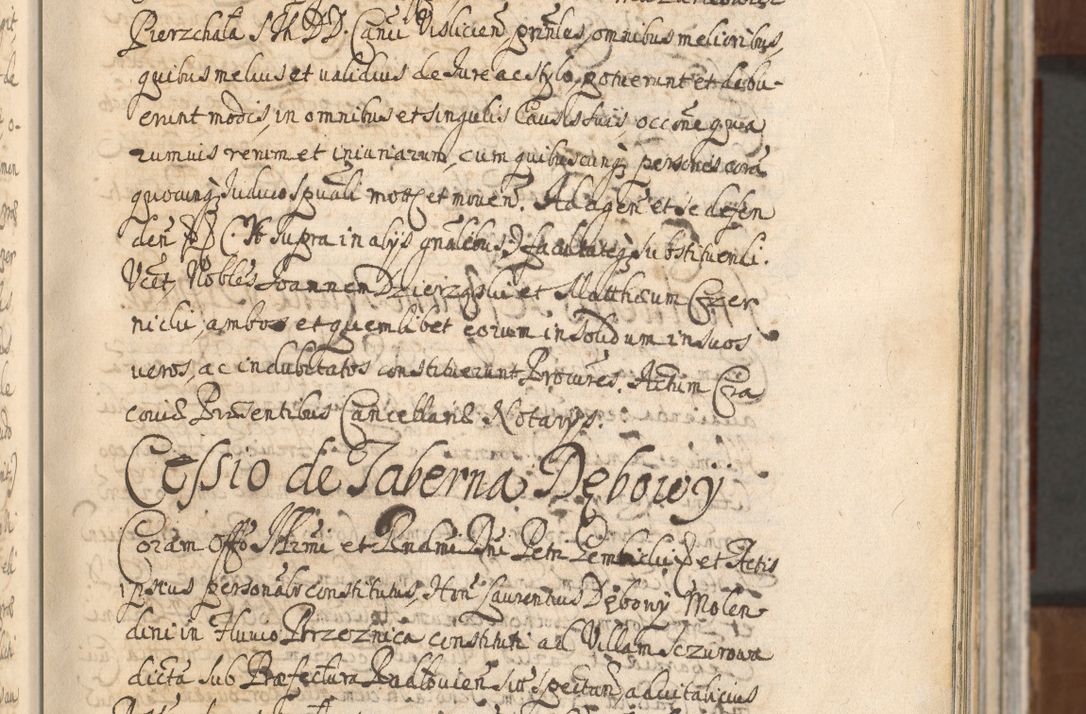 Pierzchała S M DD. Canci Vislicien prntes, omnibus melioribus,
quibus melius et validius de Jure ac stylo, potuerunt et debu-
erunt modis, in omnibus et singulis Causis suis, occone qua
rumuis rerum et iniuriarum, cum quibuscunq personis corā
quocunq Judicio spuali mot et mouen. Ad agen et se defen
den p C ut supra in alijs gnalibus p facultateq substituendi.
Vcet, Nobles Joannem Dzierzgski et Matthæum Czer
nicki, ambos et quemlibet eorum in solidum in suos
ueros, ac indubitatos constituerunt Procures. Actum Cra
couiæ Præsentibus Cancellariæ Notarijs.
Cessio de Taberna Dębowy
Coram Offo Illrmi et Rndmi Dni Petri Gembicki et Actis
ipsius personalr constitutus, Hon Laurentius Dębowy Molen-
dini in fluuio Przeznica constituti ad Villam Sczurowa
dicta sub Præfectura Radlouien sitt spectan aduitalicius